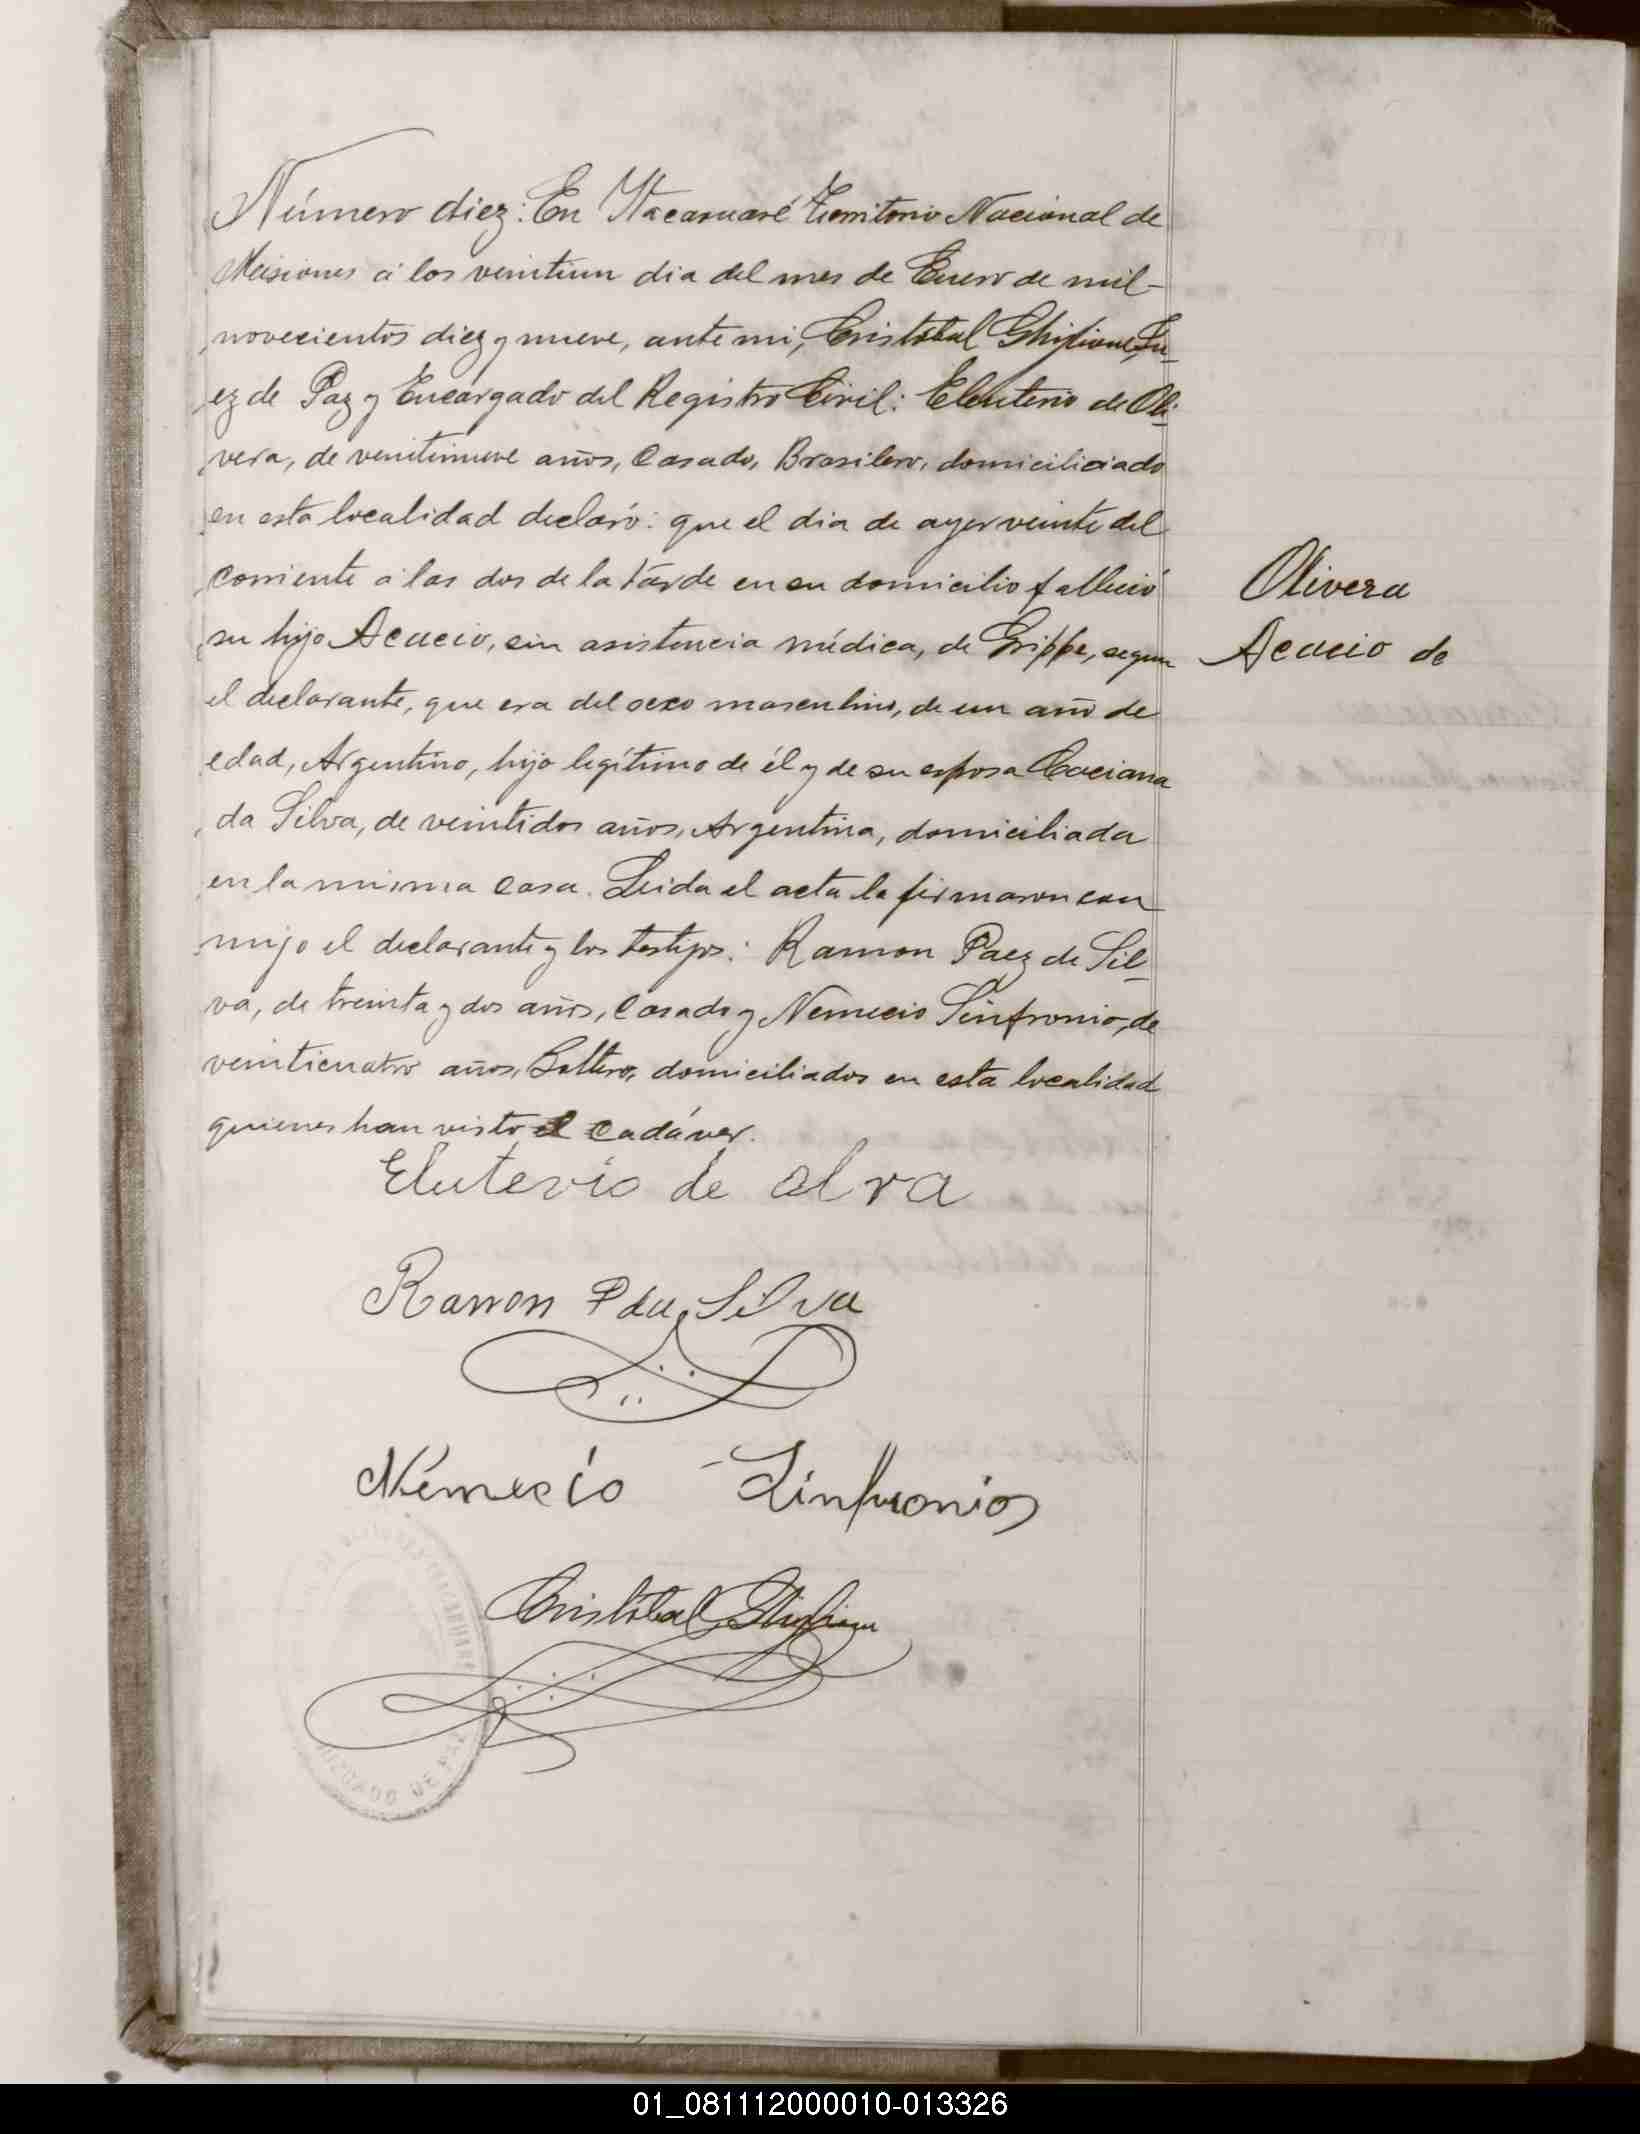 Número diez: En Itacaruaré Territorio Nacional de
Misiones á los veintiun dia del mes de Enero de mil-
novecientos diez y nueve, ante mi, Cristóbal Ghiglione, Ju-
ez de Paz y Encargado del Registro Civil: Eleuterio de Oli-
vera, de veintinueve años, Casado, Brasilero, domiciliciado
en esta localidad declaró: que el dia de ayer veinte del
corriente á las dos de la tárde en su domicilio falleció
su hijo Acacio, sin asistencia médica, de Grippe, segun
el declarante, que era del sexo masculino, de un año de
edad, Argentino, hijo legítimo de él y de su esposa Cociana
da Silva, de veintidos años, Argentina, domiciliada
en la misma casa. Leida el acta la firmaron con
migo el declarante y los testigos: Ramon Paez de Sil-
va, de treinta y dos años, Casado y Nemecio Sinfronio, de
veinticuatro años, Soltero, domiciliados en esta localidad
quienes han visto el cadáver.
Olivera
Acacio de
Eluterio de olvra
Ramon P da Silva
Nemecio Sinfronio
Cristóbal Ghiglione
JUZGADO DE PAZ
01_081112000010-013326